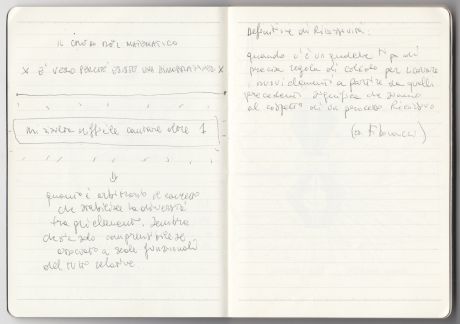 IL COVO DEL MATEMATICO
× È VERO PERCHÉ ESISTE UNA DIMOSTRAZIONE ×
mi riesce difficile contare oltre 1
⇓
quanto è arbitrario il
che stabilisce la diversità
tra gli elementi. Sembra
che sia solo comprensibile se
a scale funzionali
del tutto relative
Definizione di Ricorsività:
quando c'è un qualche tipo di
precisa regola di calcolo per trovare
nuovi elementi a partire da quelli
precedenti significa che siamo
al cospetto di un processo Ricorsivo
(es. Fibonacci)